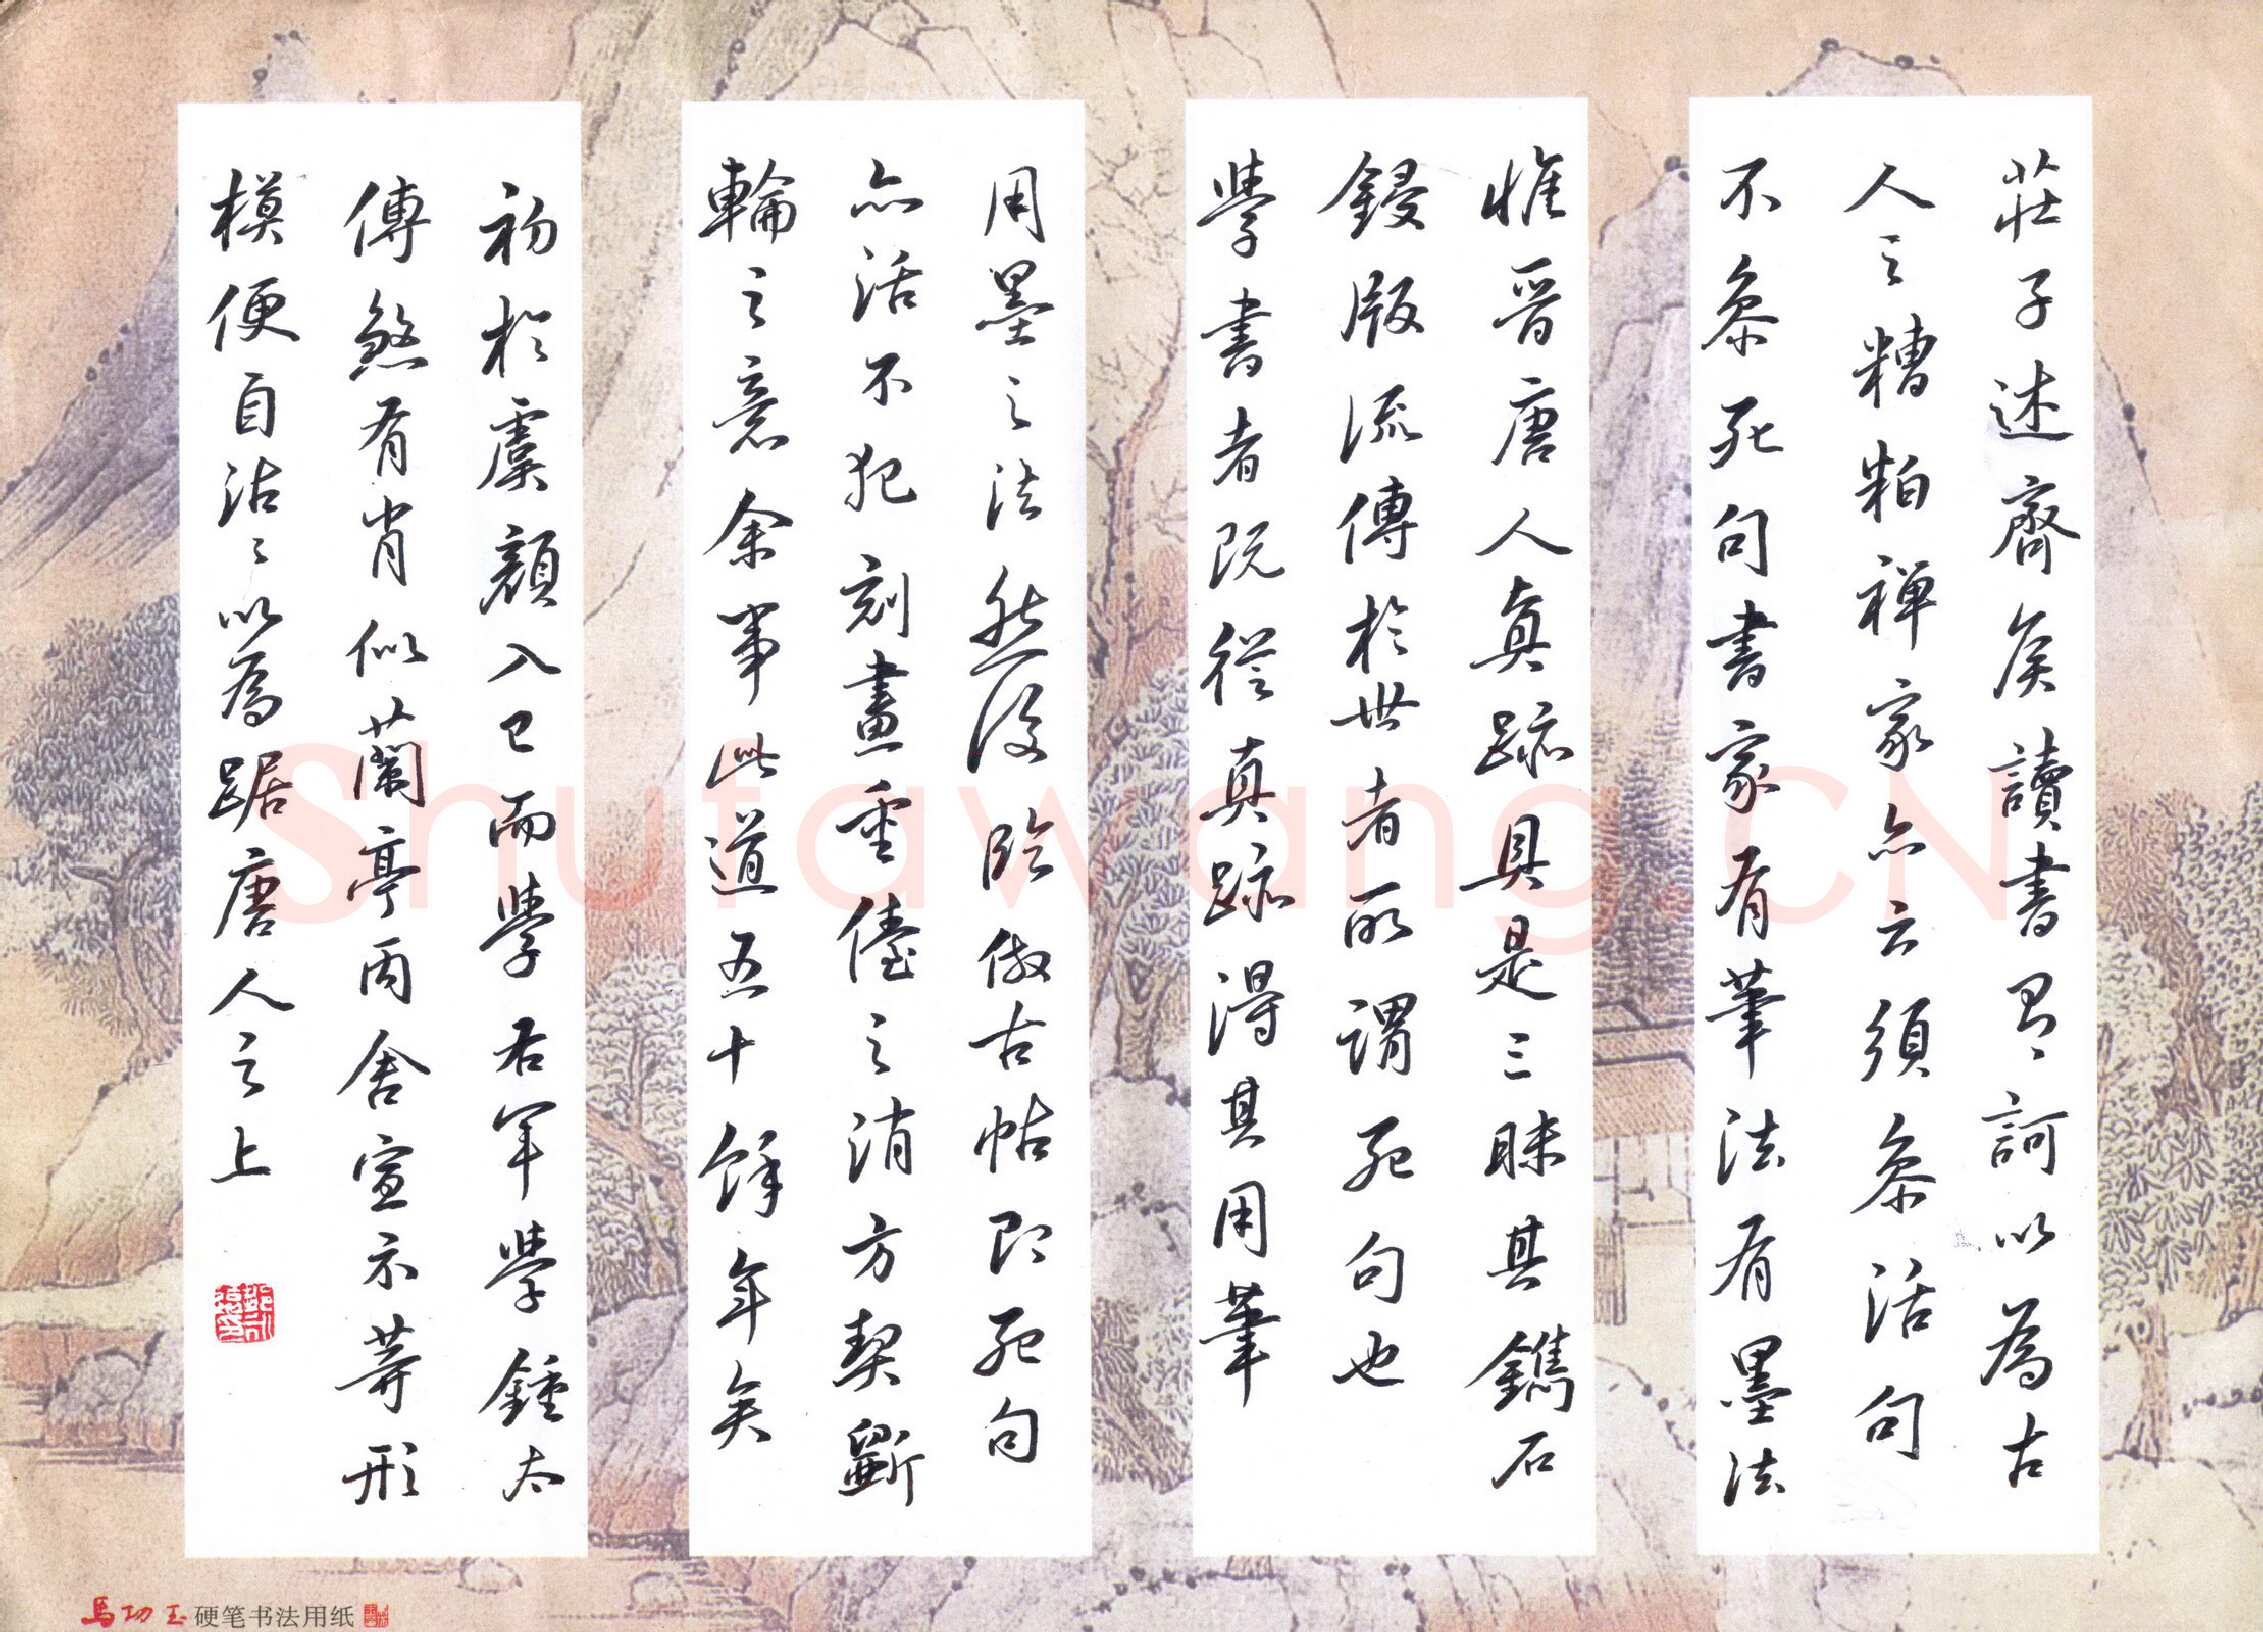 莊子述齊侯讀書有訶以為古
人之糟粕禪家亦云須參活句
不參死句書家有筆法有墨法
惟晉唐人真跡具是三昧其鐫石
鋟版流傳於世者所謂死句也
學書者既從真跡得其用筆
用墨之法然後臨倣古帖即死句
亦活不犯刻畫重儓之消方契斲
輪之意余事此道五十餘年矣
初於虞顏入已而學右軍學鍾太
傅煞有肖似蘭亭丙舍宣示等形
模便自沾々以為踞唐人之上
馬功玉 硬笔书法用纸
Shufawang.CN